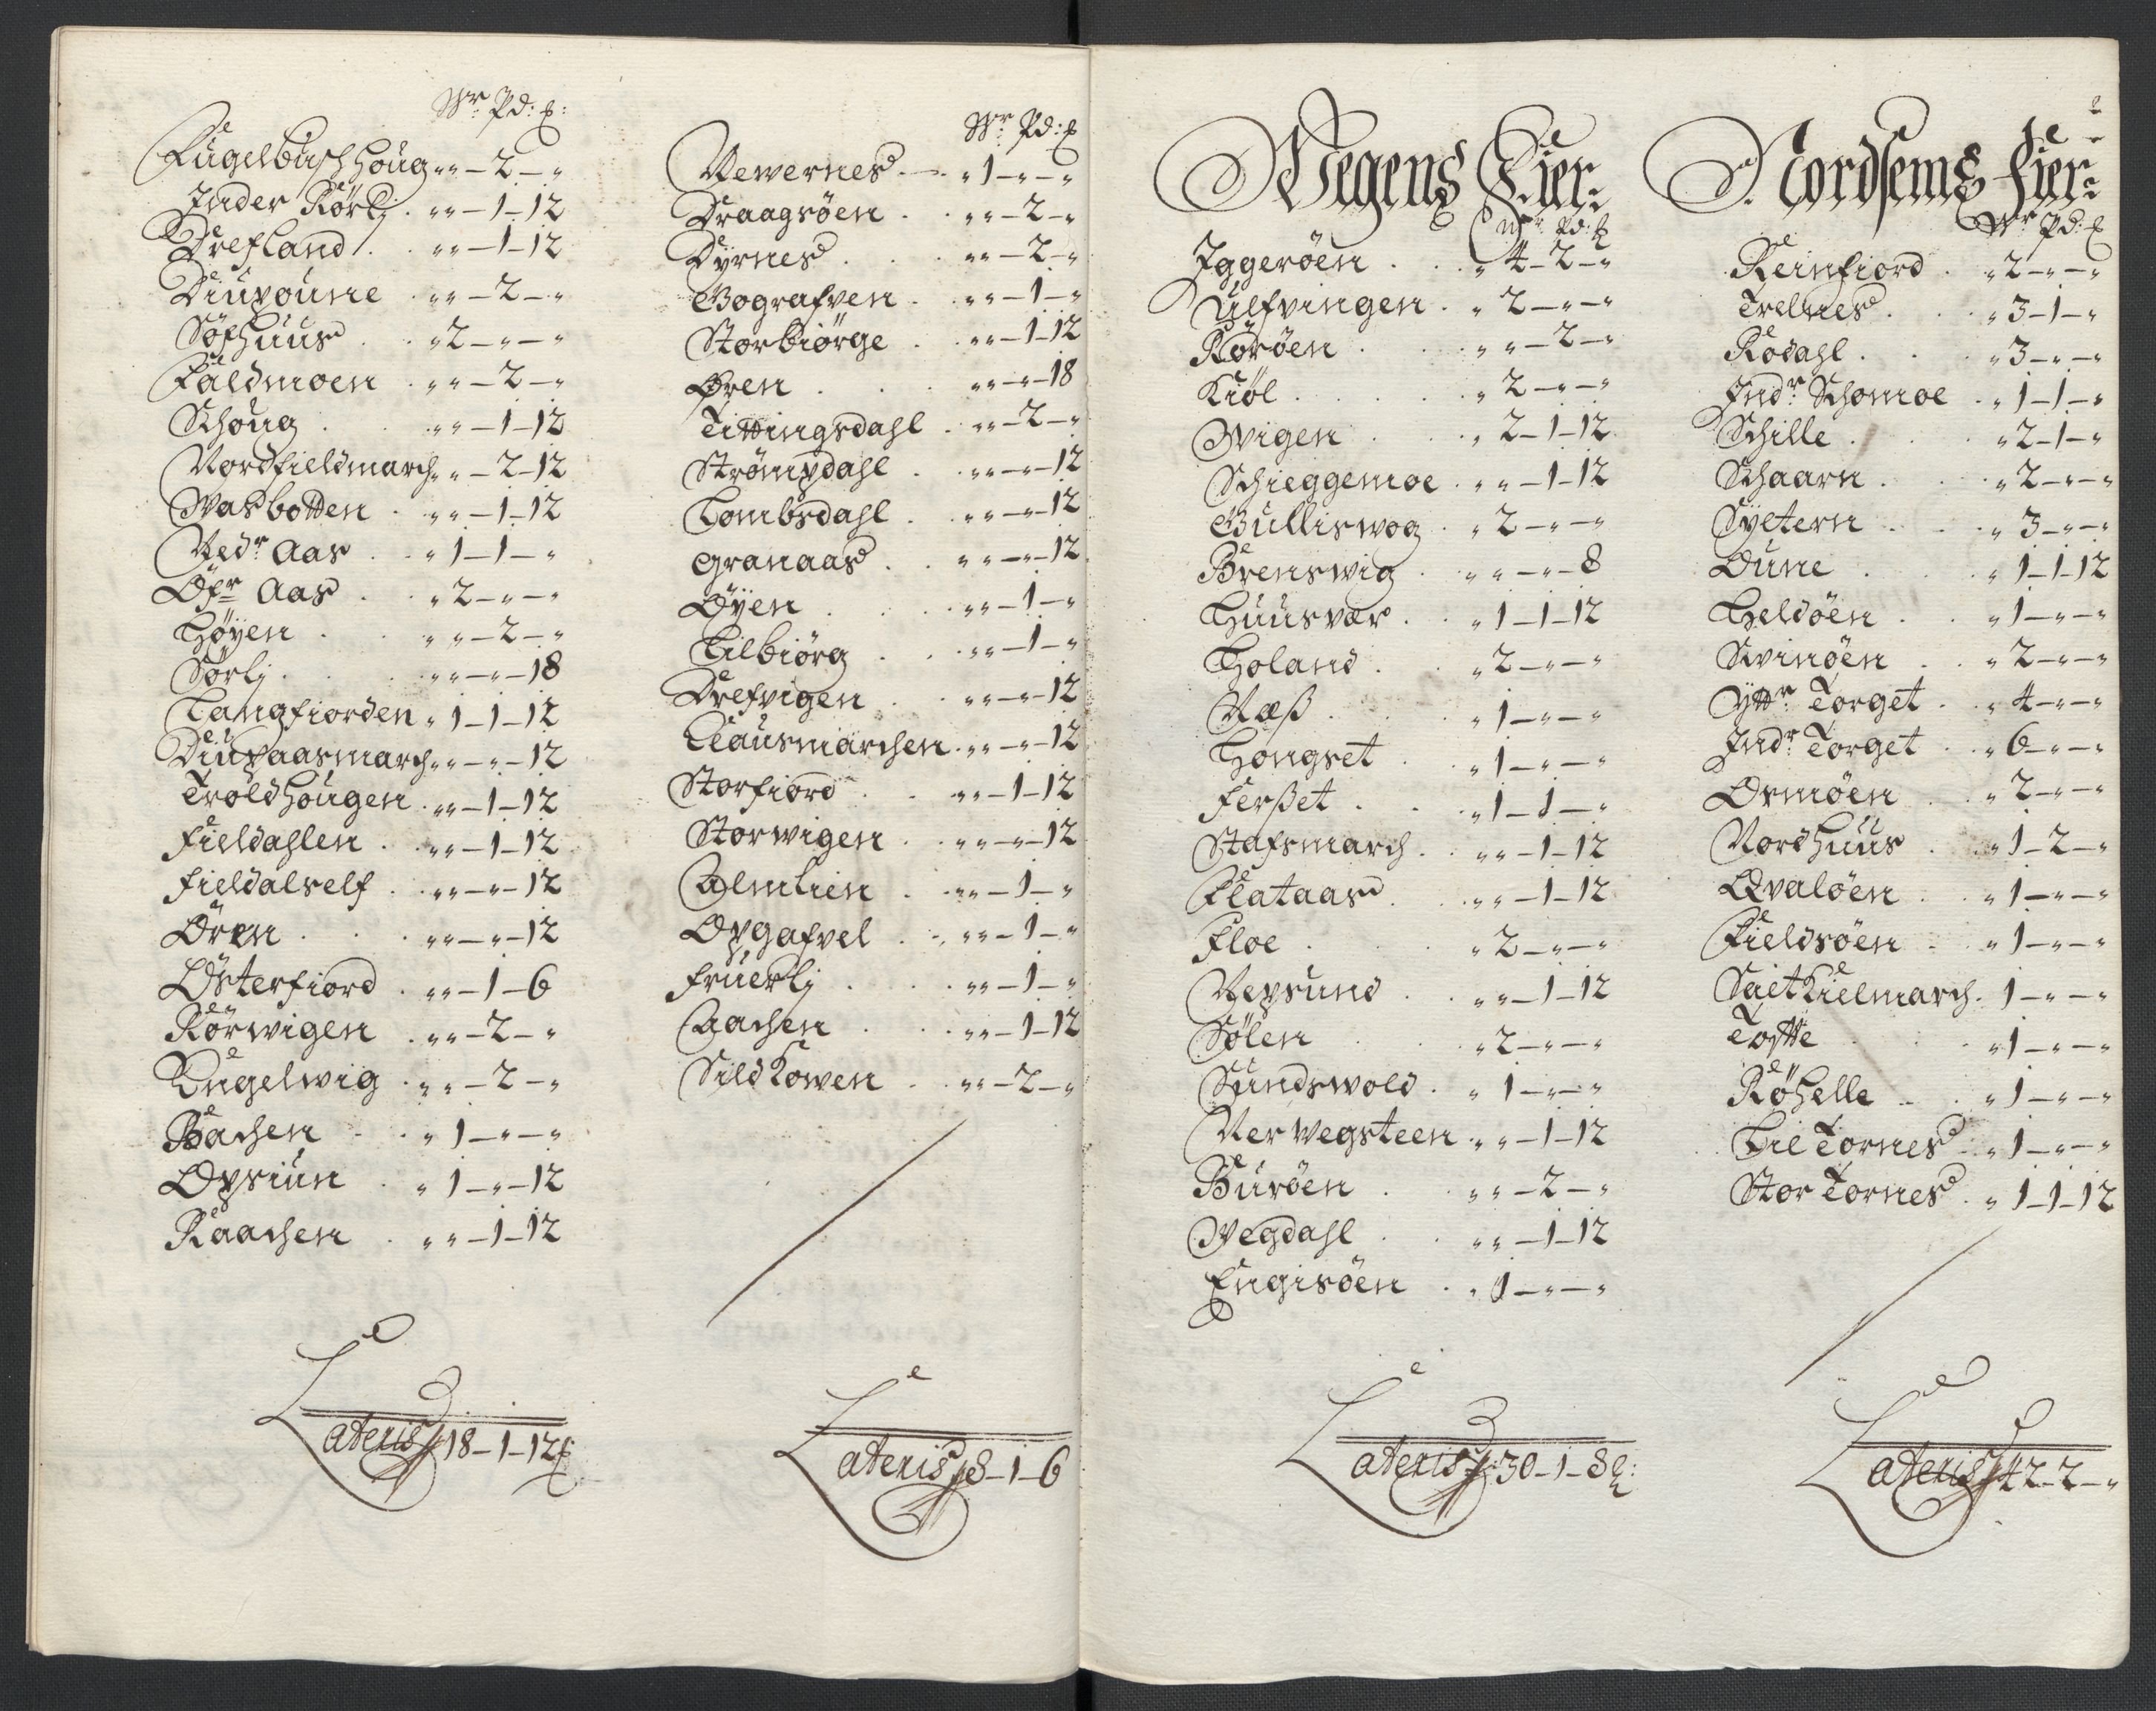 Wr Pd: £:
Fugelbaschhoug „ „ – 2 – „
Inder Rörlj . „ „ – 1 – 12
Drefland . „ „ – 1 – 12
Diupoune . „ „ – 2 – „
Söfhuus . „ 2 – „ – „
Fuldmoen . „ „ – 2 – „
Schoug . „ „ – 1 – 12
Nordfieldmarch „ „ – 2 – 12
Wasbotten . „ „ – 1 – 12
Nedr Aas . „ 1 – 1 – „
Öfr Aas . „ 2 – „ – „
Höyen . „ „ – 2 – „
Sörlj . „ „ – „ – 18
Langfiorden „ 1 – 1 – 12
Diupaasmarch „ „ – „ – 12
Troldhougen . „ „ – 1 – 12
Fieldahlen . „ „ – 1 – 12
Fieldalself . „ „ – „ – 12
Ören . „ „ – „ – 12
Österfiord . „ „ – 1 – 6
Rörwigen . „ „ – 2 – „
Engelwig . „ „ – 2 – „
Bachen . „ 1 – „ – „
Opsiun . „ 1 – „ – 12
Raachen . „ „ – 1 – 12
Lateris 18 – 1 – 12 £:
Wr Pd: £
Newernes . „ 1 – „ – „
Draagsöen . „ „ – 2 – „
Dyrnes . „ „ – 2 – „
Bografven . „ „ – 1 – „
Storbiörge . „ „ – 1 – 12
Øren . „ „ – „ – 18
Tittingsdahl . „ „ – 2 – „
Strömpdahl . „ „ – „ – 12
Lombsdahl . „ „ – „ – 12
Granaas . „ „ – „ – 12
Öyen . „ „ – 1 – „
Lilbiörg . „ „ – 1 – „
Drefvigen . „ „ – „ – 12
Clausmarchen . „ „ – „ – 12
Storfiord . „ „ – 1 – 12
Storwigen . „ „ – „ – 12
Almlien . „ „ – 1 – „
Opgafvel . „ „ – 1 – „
Fruerlj . „ „ – 1 – „
Aachen . „ „ – 1 – 12
Sildkowen . „ „ – 2 – „
Lateris 8 – 1 – 6
Wegens Fier:
Wr: Pd: £
Iggeröen . „ 4 – 2 – „
Ulfvingen . „ 2 – „ – „
Roröen . „ „ – 2 – „
Kiöl . „ 2 – „ – „
Wigen . „ 2 – 1 – 12
Schieggemoe . „ „ – 1 – 12
Bulliswog . „ 2 – „ – „
Brenswig . „ „ – „ – 8
Huusvær . „ 1 – 1 – 12
Holand . „ 2 – „ – „
Næss . „ 1 – „ – „
Hongset . „ 1 – „ – „
Ferßet . „ 1 – 1 – „
Stafsmarch . „ „ – 1 – 12
Flataas . „ „ – 1 – 12
Floe . „ 2 – „ – „
Repsund . „ „ – 1 – 12
Sölen . „ 2 – „ – „
Sundswold . „ 1 – „ – „
Ner Wegsteen . „ „ – 1 – 12
Buröen . „ „ – 2 – „
Wegdahl . „ „ – 1 – 12
Engisöen . „ 1 – „ – „
Lateris 30 – 1 – 8 £:
Nordsems Fier:
Wr Pd: £
Reinfiord . „ 2 – „ – „
Trelnes . „ 3 – 1 – „
Rodahl . „ 3 – „ – „
Indr Schomoe . „ 1 – 1 – „
Schille . „ 2 – 1 – „
Schaarn . „ 2 – „ – „
Syltern . „ 3 – „ – „
Dune . „ 1 – 1 – 12
Heldöen . „ 1 – „ – „
Svinöen . „ 2 – „ – „
Yttr Torget . „ 4 – „ – „
Indr Torget . „ 6 – „ – „
Ormöen . „ 2 – „ – „
Nordhuus . „ 1 – 2 – „
Qvalöen . „ 1 – „ – „
Fieldsöen . „ 1 – „ – „
Saltkielmarch . 1 – „ – „
Tofte . „ 1 – „ – „
Röhelle . „ 1 – „ – „
Lil Tornes . „ 1 – „ – „
Stor Tornes . „ 1 – 1 – 12
Lateris 42 – 2 – „